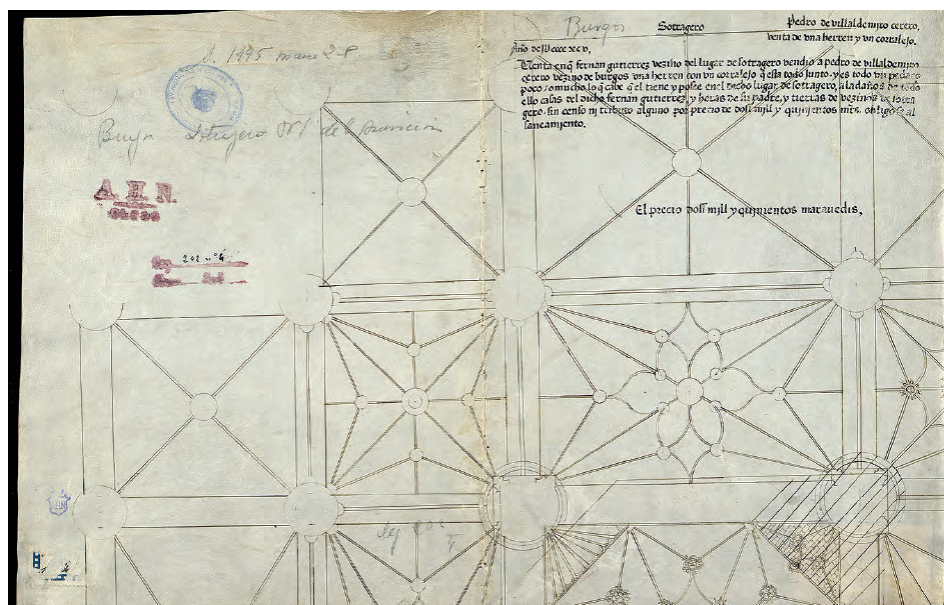 Burgos
Sotragero
Pedro de villaldemiro cerero,
venta de vna herren y vn cortalejo.
A. 1495 marzo 28
Año de Mcccc xcv,
Venta en q̄ fernan gutierrez vezino del lugar de sotragero vendio a pedro de villaldemiro
cerero vezino de burgos vna herren con vn cortalejo q̄ esta todo junto y es todo vn pedaço
poco / o mucho lo q̄ cabe q̄ el tiene y posee en el dicho lugar de sotragero, aladaños de todo
ello casas del dicho fernan gutierrez, y heras de su padre, y tierras de vezinos de sotra
gero. sin censo ni tributo alguno por precio de doss mill y quinientos mrs. obligose al
saneamiento.
Burgos Sotragero Mª de la Asuncion
A. H. N.
El precio doss mill y quinientos marauedis,
202 nº 4
leg 202
4